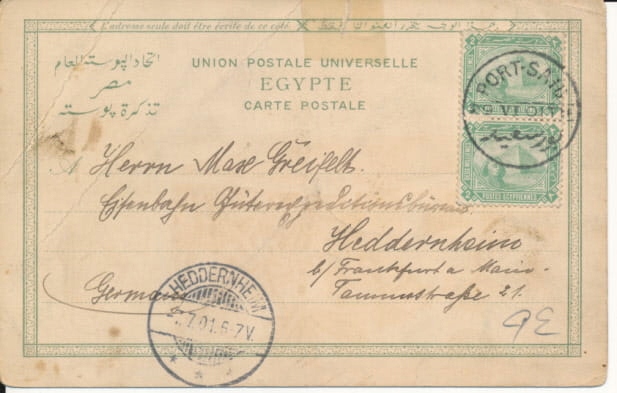 L'adresse seule doit être écrite de ce côté
اتحاد البوستة العام
مصر
تذكرة بوستة
UNION POSTALE UNIVERSELLE
EGYPTE
CARTE POSTALE
PORT-SAID
VI 01
بورسعيد
POSTES EGYPTIENNES
A Herrn Max Greifelt.
Eisenbahn Güterexpeditionsbüreau
Heddernheim
b/Frankfurt a Main
Taunusstraße 21.
Germany
HEDDERNHEIM
7.01.6-7V.